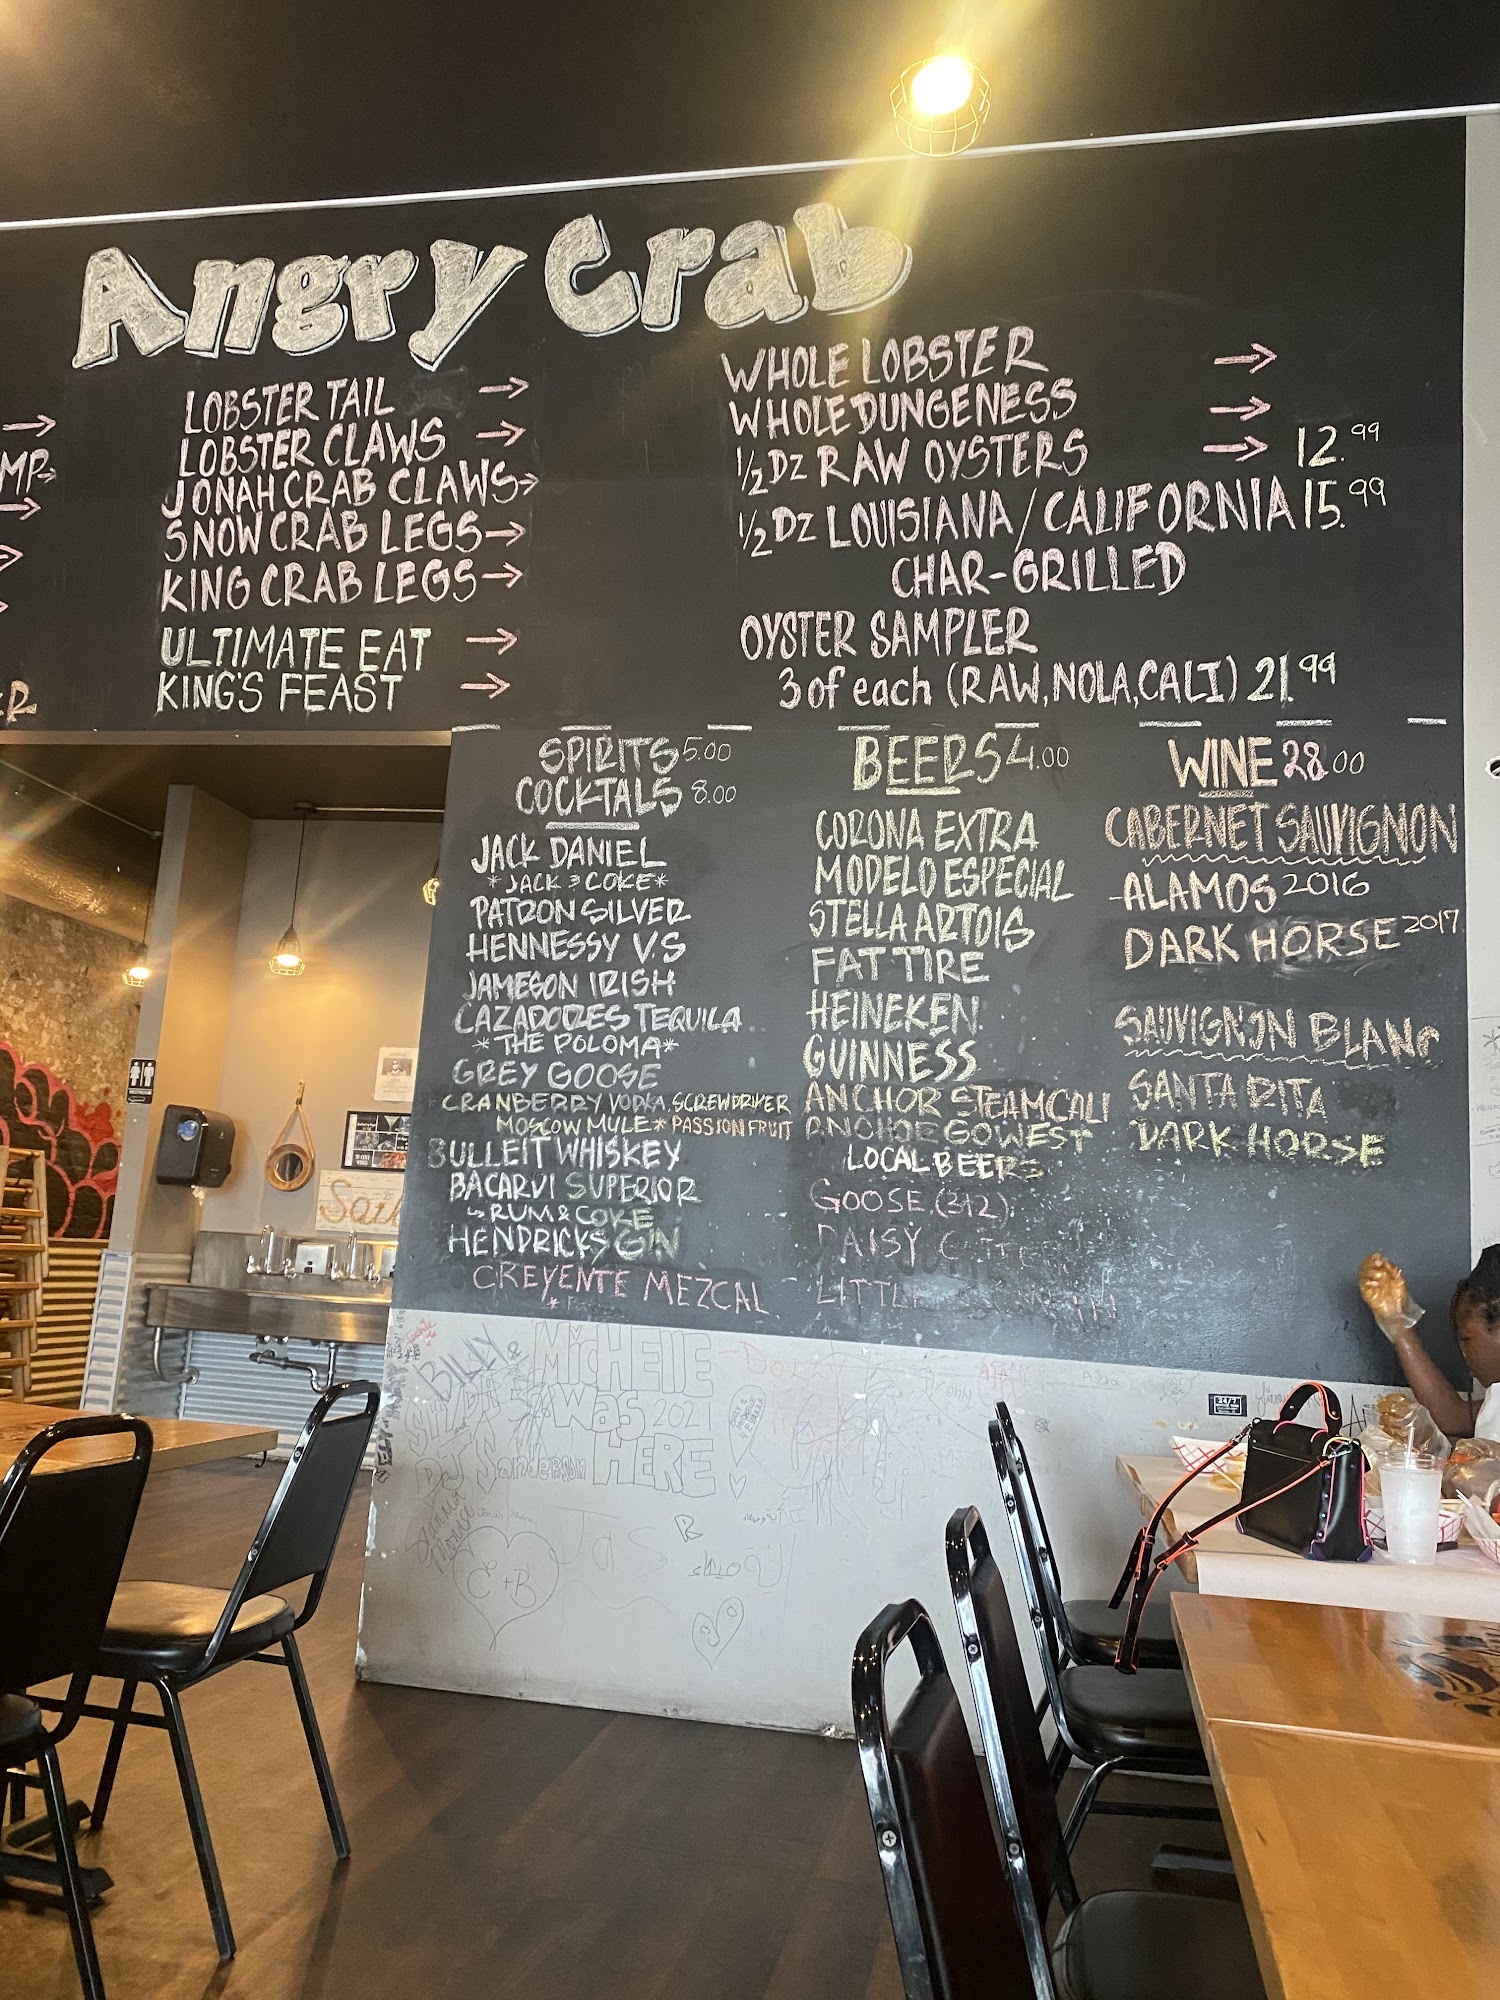 Angry Crab
MP
LOBSTER TAIL →
LOBSTER CLAWS →
JONAH CRAB CLAWS →
SNOW CRAB LEGS →
KING CRAB LEGS →
ULTIMATE EAT →
KING'S FEAST →
WHOLE LOBSTER →
WHOLE DUNGENESS →
1/2 DZ RAW OYSTERS → 12.99
1/2 DZ LOUISIANA/CALIFORNIA 15.99
CHAR-GRILLED
OYSTER SAMPLER
3 of each (RAW, NOLA, CALI) 21.99
SPIRITS 5.00
COCKTALS 8.00
JACK DANIEL
*JACK & COKE*
PATRON SILVER
HENNESSY V.S
JAMESON IRISH
CAZADORES TEQUILA
*THE POLOMA*
GREY GOOSE
CRANBERRY VODKA, SCREWDRIVER
MOSCOW MULE * PASSION FRUIT
BULLEIT WHISKEY
BACARDI SUPERIOR
↳ RUM & COKE
HENDRICKS GIN
CREYENTE MEZCAL
BEERS 4.00
CORONA EXTRA
MODELO ESPECIAL
STELLA ARTOIS
FAT TIRE
HEINEKEN
GUINNESS
ANCHOR STEAM CALI
ANCHOR GOWEST
LOCAL BEERS
GOOSE (312)
DAISY
LITTLE
WINE 28.00
CABERNET SAUVIGNON
-ALAMOS 2016
DARK HORSE 2017
SAUVIGNON BLANC
SANTA RITA
DARK HORSE
BILLY &
MICHELLE
WAS 2021
HERE
DJ Sanderson
C+B
R
24/7